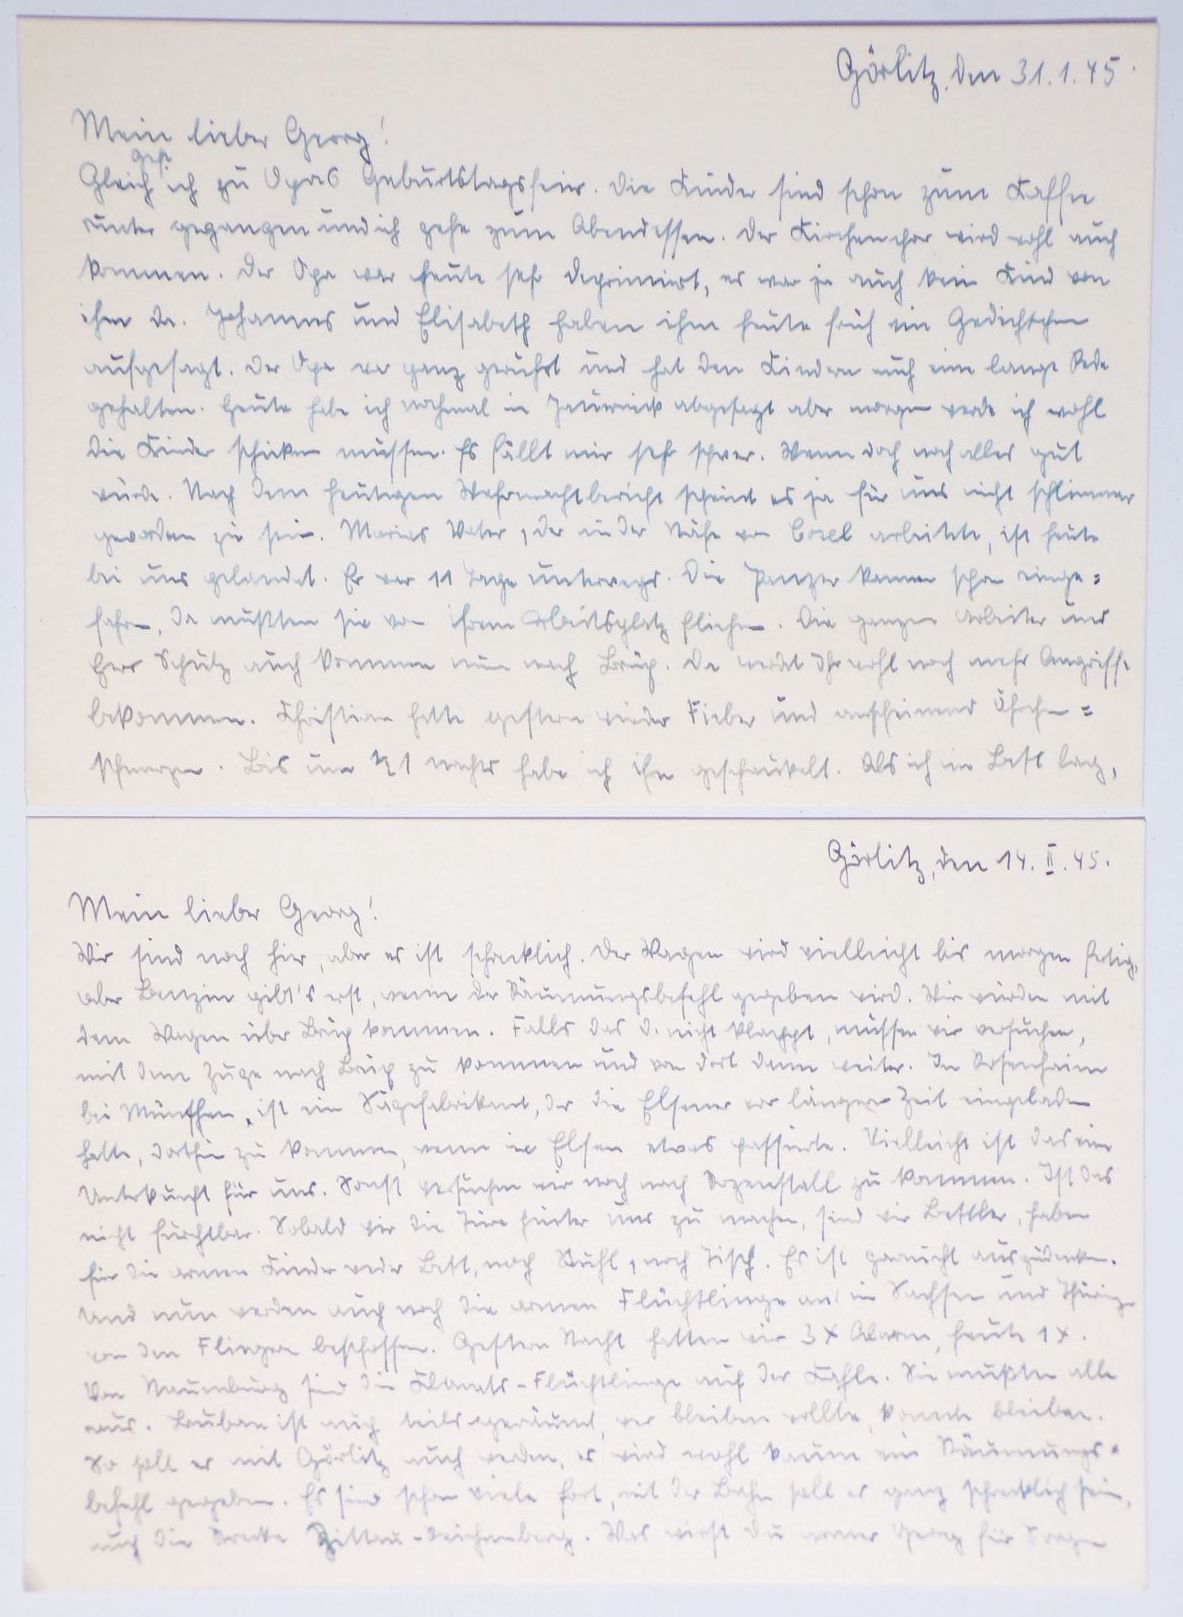 Görlitz, den 31.1.45.
Mein lieber Georg!
Gleich geh ich zu Opas Geburtstagsfeier. Die Kinder sind schon zum Kaffee
runter gegangen und ich gehe zum Abendessen. Der Kirchenchor wird wohl auch
kommen. Der Opa war heute sehr deprimiert, es war ja auch kein Kind von
ihm da. Johannes und Elisabeth haben ihm heute früh ein Gedichtchen
aufgesagt. Der Opa war ganz gerührt und hat den Kindern auch eine lange Rede
gehalten. Heute habe ich nochmal in Jauernick abgesagt aber morgen werde ich wohl
die Kinder schicken müssen. Es fällt mir sehr schwer. Wenn doch noch alles gut
würde. Nach dem heutigen Wehrmachtbericht scheint es ja für uns nicht schlimmer
geworden zu sein. Marias Vater, der in der Nähe von Cosel arbeitete, ist heute
bei uns gelandet. Er war 11 Tage unterwegs. Die Panzer kamen schon einge=
fahren, da mußten sie von ihrem Arbeitsplatz fliehen. Die ganzen Arbeiter und
Herr Schulz auch kommen nun nach Brüx. Da werdet Ihr wohl noch mehr Angriffe
bekommen. Christian hatte gestern wieder Fieber und anscheinend Öhrchen=
schmerzen. Bis um 1/2 1 nachts habe ich ihn geschaukelt. Als ich im Bett lag,
Görlitz, den 14. II. 45.
Mein lieber Georg!
Wir sind noch hier, aber es ist schrecklich. Der Wagen wird vielleicht bis morgen fertig,
aber Benzin gibt's erst, wenn der Räumungsbefehl gegeben wird. Wir würden mit
dem Wagen über Brüx kommen. Falls das d. nicht klappt, müssen wir versuchen,
mit dem Zuge nach Brüx zu kommen und von dort dann weiter. In Rosenheim
bei München, ist ein Sägefabrikant, der die Elsener vor längerer Zeit eingeladen
hatte, dorthin zu kommen, wenn in Elsen etwas passierte. Vielleicht ist das eine
Unterkunft für uns. Sonst versuchen wir noch nach zu kommen. Ist das
nicht furchtbar. Sobald wir die Türe hinter uns zu machen, sind wir Bettler, haben
für die armen Kinder weder Bett, noch Stuhl, noch Tisch. Es ist garnicht auszudenken.
Und nun werden auch noch die armen Flüchtlinge in Sachsen und Thüring.
von den Fliegern beschossen. Gestern Nacht hatten wir 3 x Alarm, heute 1 x.
Von Naumburg sind die Flüchtlinge auf der Sie mußten alle
raus. Lauban ist auch teils geräumt, wer bleiben wollte, konnte bleiben.
So soll es mit Görlitz auch werden, es wird wohl kaum ein Räumungs=
befehl gegeben. Es sind schon viele fort, mit der Bahn soll es ganz schrecklich sein,
auch die Strecke Zittau-Reichenberg. Was wirst Du armer Georg für Sorgen